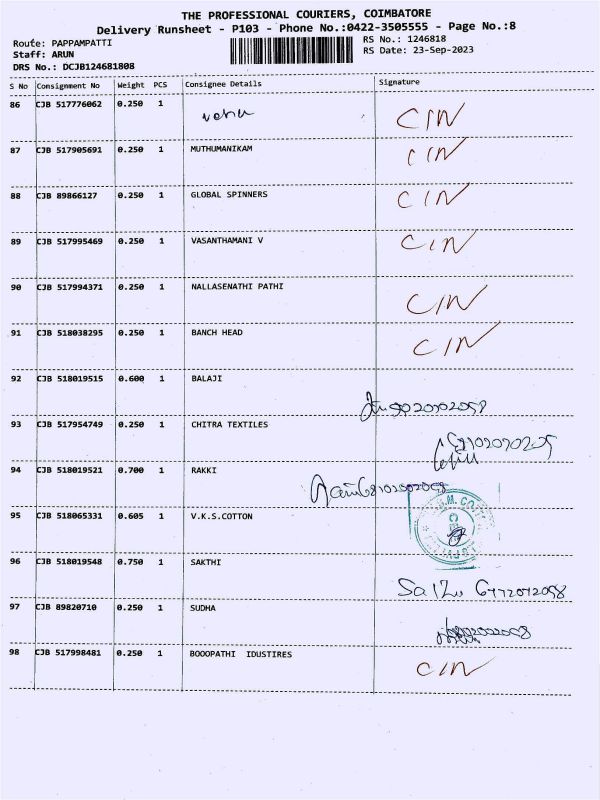 THE PROFESSIONAL COURIERS, COIMBATORE
Delivery Runsheet - P103 - Phone No.:0422-3505555 - Page No.:8
Route: PAPPAMPATTI
RS No.: 1246818
Staff: ARUN
RS Date: 23-Sep-2023
DRS No.: DCJB124681808
S No Consignment No Weight PCS Consignee Details Signature
86 CJB 517776062 0.250 1 CIN
87 CJB 517905691 0.250 1 MUTHUMANIKAM CIN
88 CJB 89866127 0.250 1 GLOBAL SPINNERS CIN
89 CJB 517995469 0.250 1 VASANTHAMANI V CIN
90 CJB 517994371 0.250 1 NALLASENATHI PATHI CIN
91 CJB 518038295 0.250 1 BANCH HEAD CIN
92 CJB 518019515 0.600 1 BALAJI
93 CJB 517954749 0.250 1 CHITRA TEXTILES
94 CJB 518019521 0.700 1 RAKKI
95 CJB 518065331 0.605 1 V.K.S.COTTON
96 CJB 518019548 0.750 1 SAKTHI
97 CJB 89820710 0.250 1 SUDHA
98 CJB 517998481 0.250 1 BOOOPATHI IDUSTIRES CIN